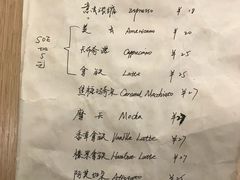 意式浓缩 Espresso ¥18
美式 Americano ¥20
卡布奇诺 Cappuccino ¥25
拿铁 Latte ¥25
焦糖玛奇朵 Caramel Macchiato ¥27
摩卡 Mocha ¥27
香草拿铁 Vanilla Latte ¥27
榛果拿铁 Hazelnut Latte ¥27
¥25